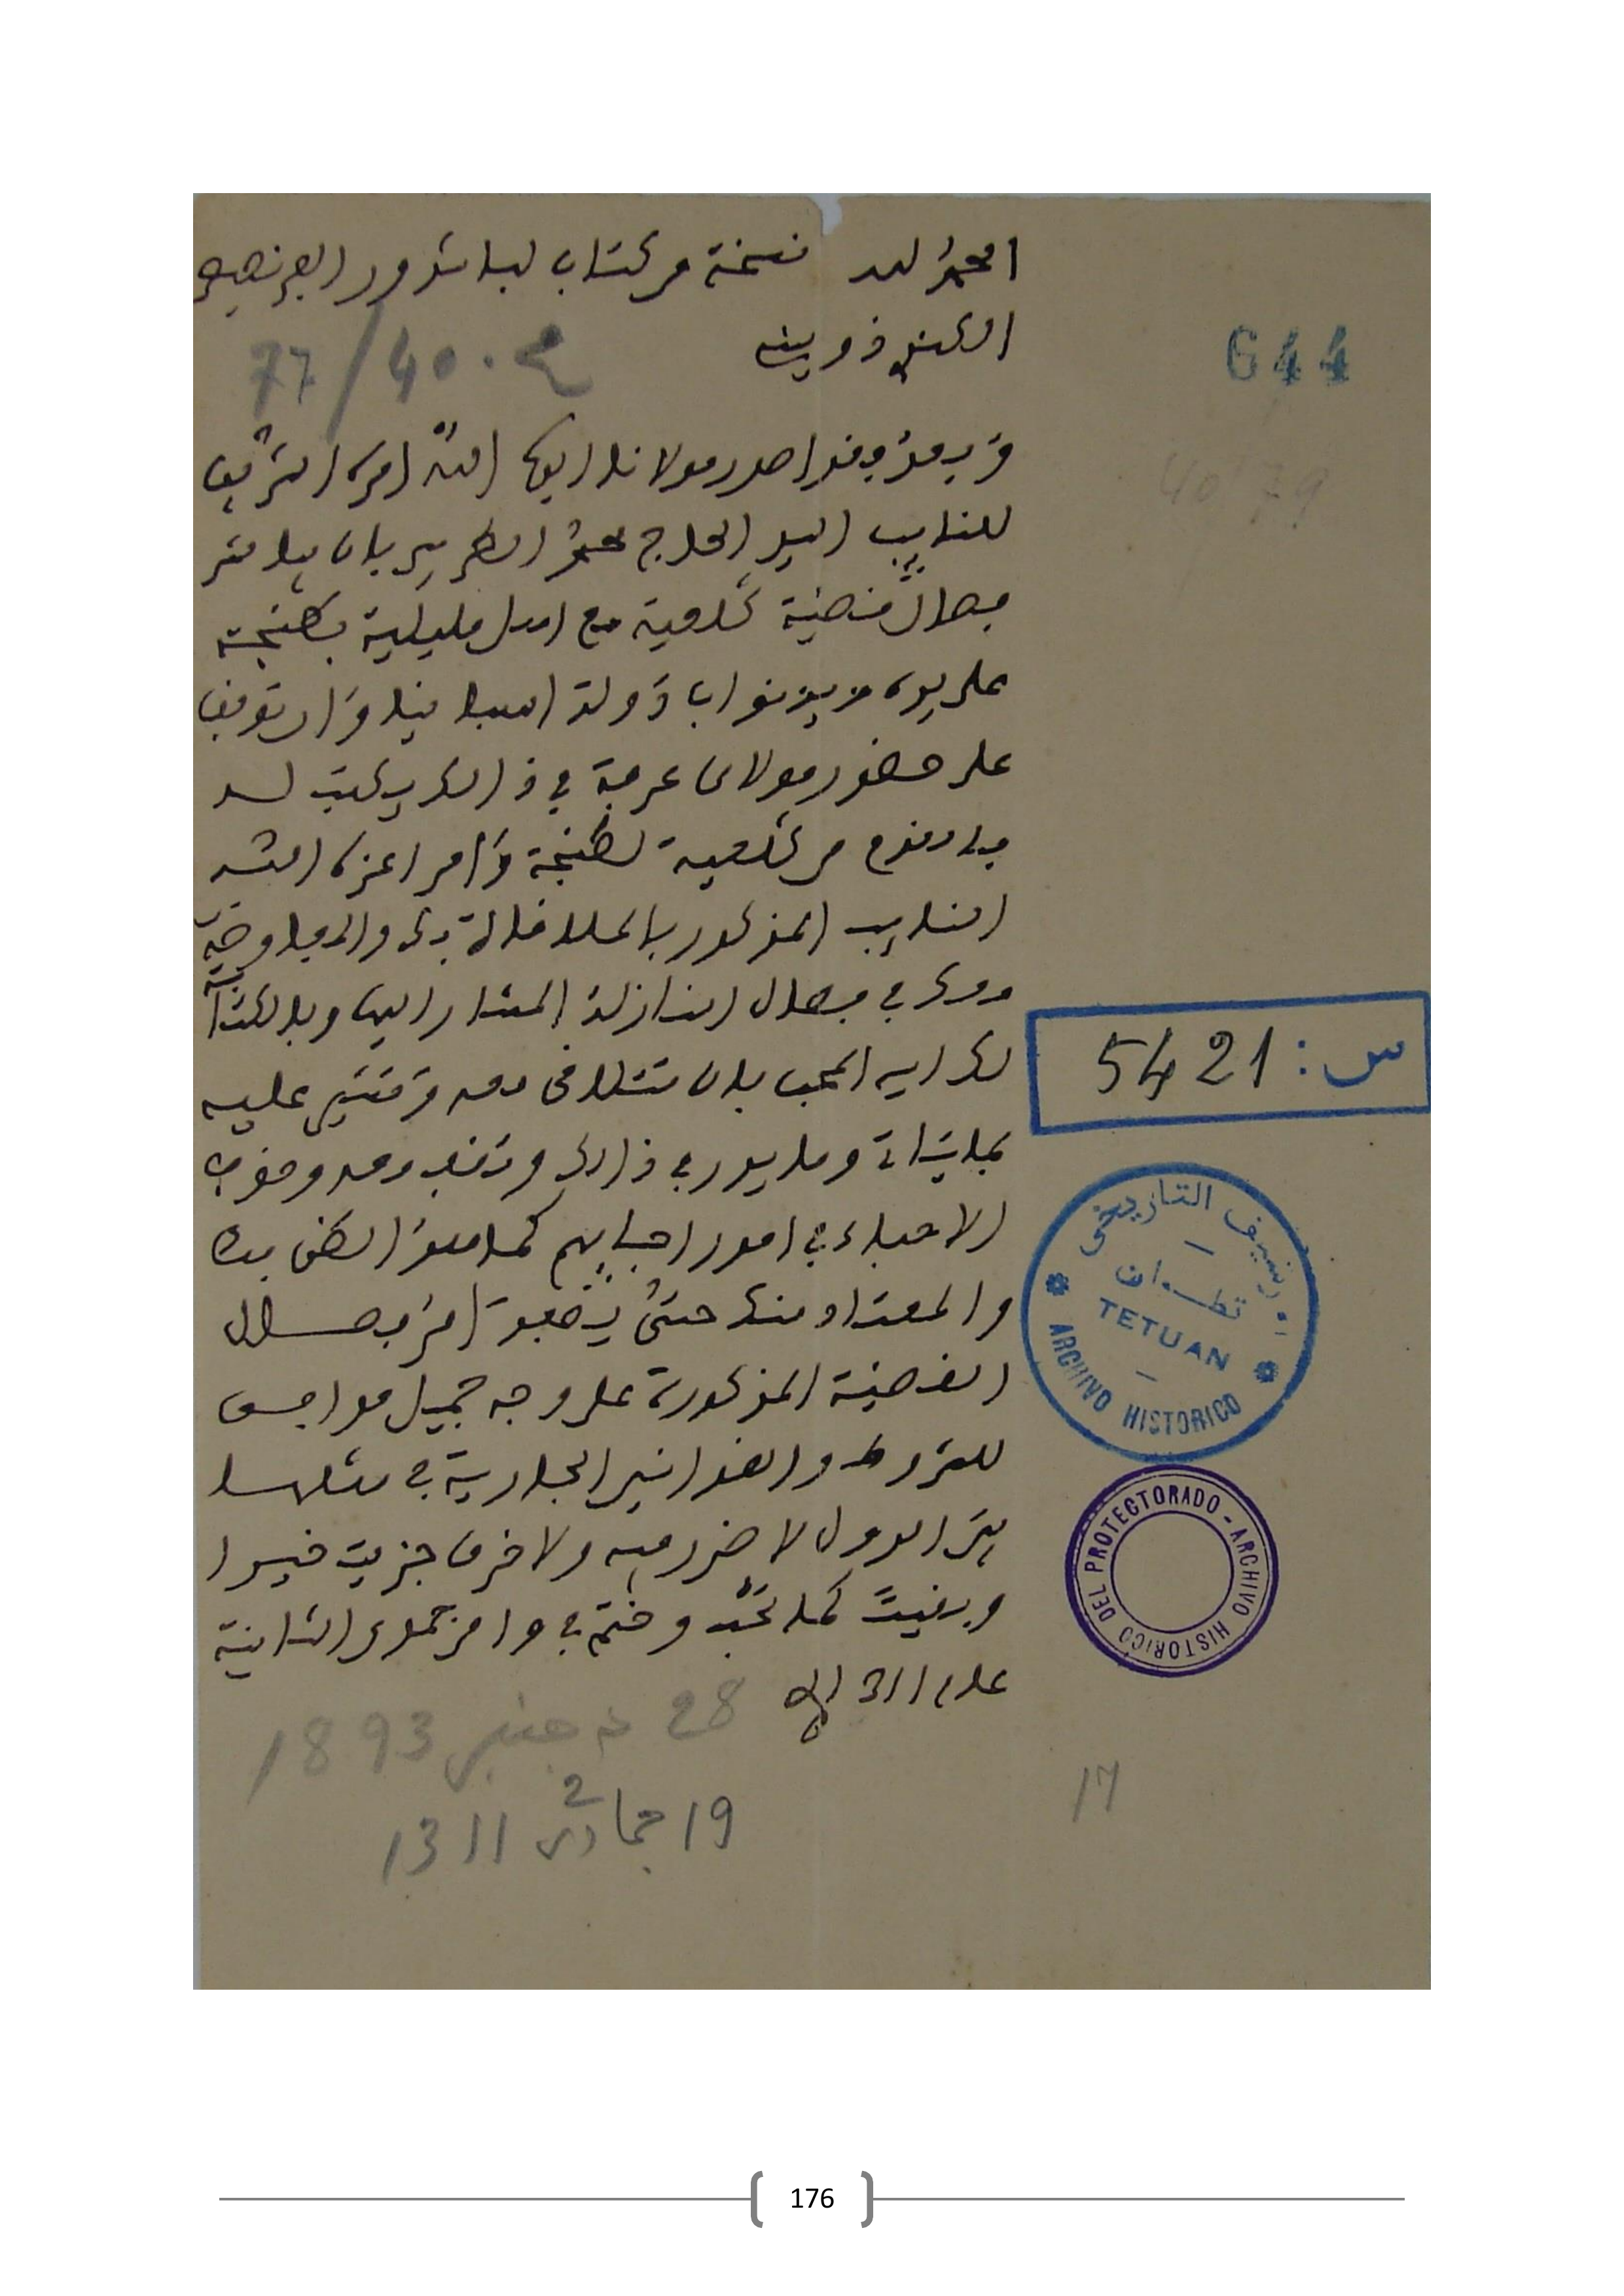 الحمد لله نسخة من كتاب لباشدور الفرنصيص
الكنض ذوبيني
م. 40/77
644
40 79
وبعد فقد اصدر مولانا ايده الله امره الشريف
للنايب السيد الحاج محمد الطريس بان يباشر
فصال قضية كلعية مع اهل مليلية بطنجة
على يده مع نواب دولة اصبانيا وان توقف
على حضور مولاي عرفة في ذالك يكتب له
بالقدوم من كلعية لطنجة وامر اعزه الله
النايب المذكور بالملاقاة بك والمفاوضة
معك في فصال النازلة المشار اليها وبالكتابة
لك ايها المحب بان تتلاقى معه وتشير عليه
بما يتاتى وما يعد في ذالك وتقف معه وقوف
الاحباء في امور احبابهم كما هو الظن بك
والمعتاد منك حتى يقع امر فصال
القضية المذكورة على وجه جميل موافق
للشروط والقوانين الجارية في مثلها
بين الدول لا ضرر فيه ولا خرق جزيت خيرا
وبقيت كما تحب وختم في وامن جمدى الثانية
عام 1311 الخ
28 دجنبر 1893
19 جمادى 2 1311
17
س: 5421
الارشيف التاريخي
تطوان
TETUAN
ARCHIVO HISTORICO
DEL PROTECTORADO - ARCHIVO HISTORICO
176